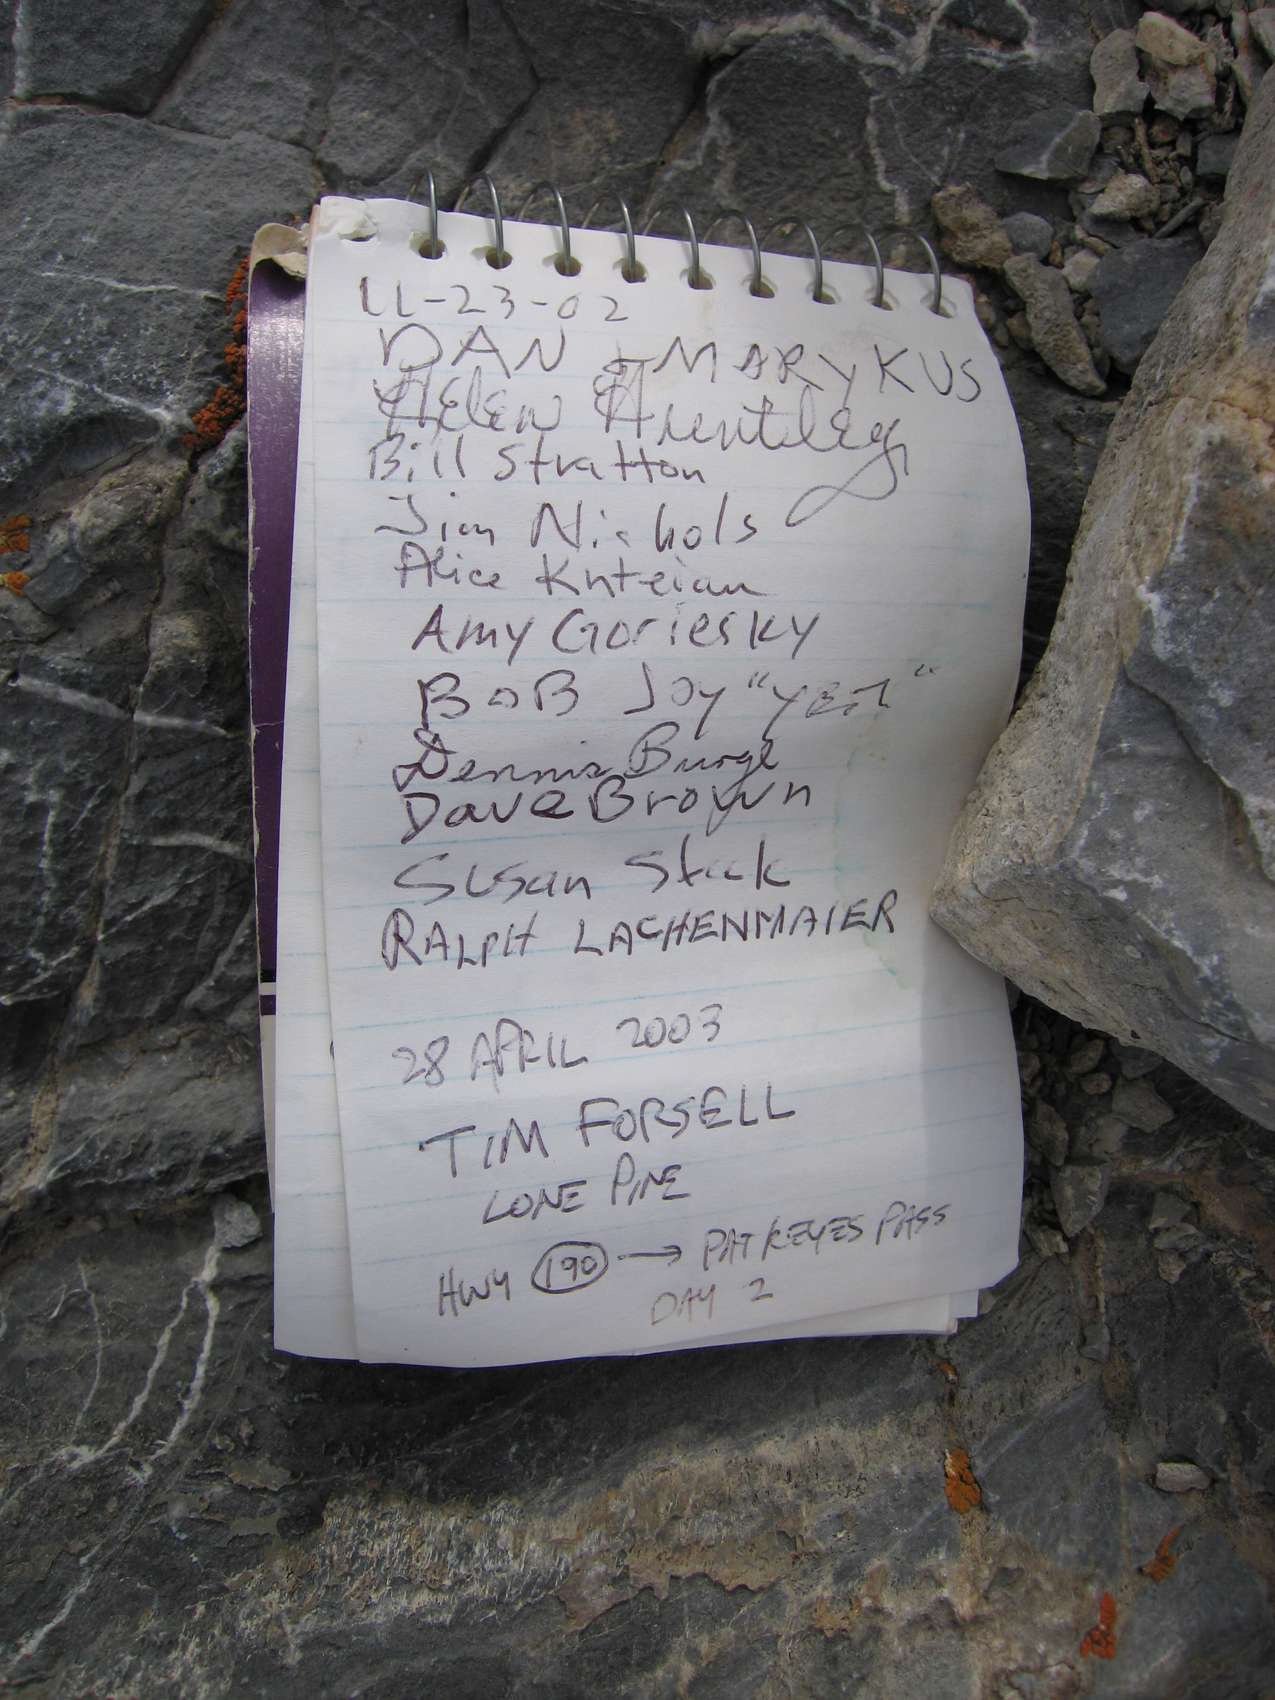 11-23-02
DAN & MARY KUS
Helen Huntley
Bill Stratton
Jim Nichols
Alice
Amy Goriesky
BOB Joy "YETI"
Dennis Burge
Dave Brown
Susan
RALPH LACHENMAIER
28 APRIL 2003
TIM FORSELL
LONE PINE
HWY 190 → PAT KEYES PASS
DAY 2